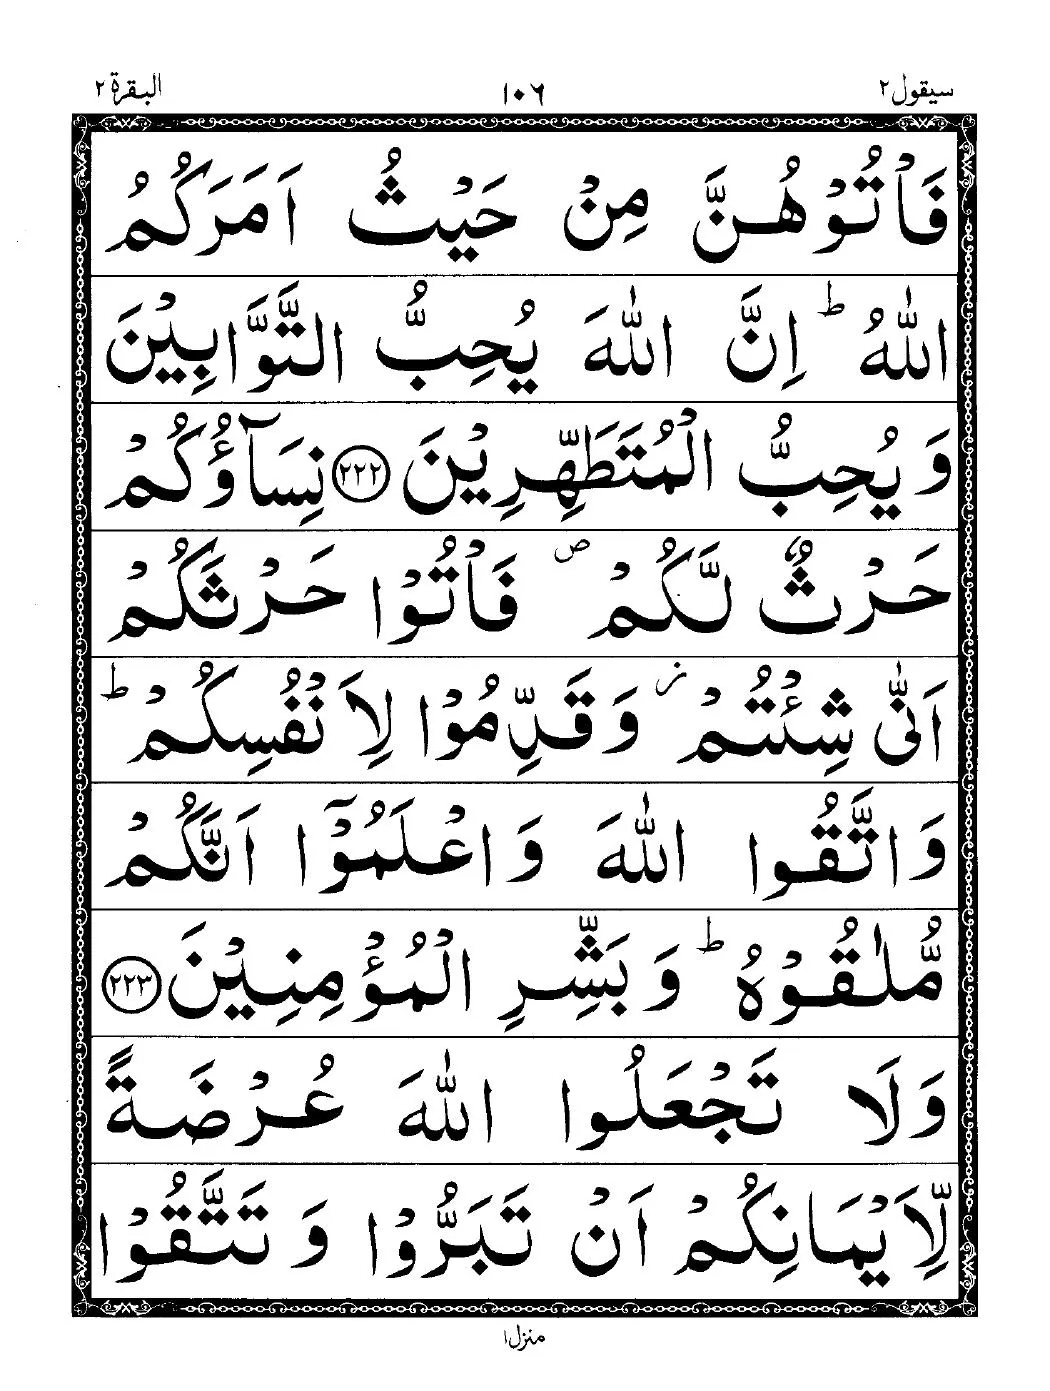 سيقول ٢ ١٠٦ البقرة ٢
فَاْتُوْهُنَّ مِنْ حَيْثُ اَمَرَكُمُ
اللّٰهُ ؕ اِنَّ اللّٰهَ يُحِبُّ التَّوَّابِيْنَ
وَيُحِبُّ الْمُتَطَهِّرِيْنَ ﴿٢٢٢﴾ نِسَآؤُكُمْ
حَرْثٌ لَّكُمْ ۖ فَاْتُوْا حَرْثَكُمْ
اَنّٰى شِئْتُمْ ؗ وَقَدِّمُوْا لِاَنْفُسِكُمْ ؕ
وَاتَّقُوا اللّٰهَ وَاعْلَمُوْٓا اَنَّكُمْ
مُّلٰقُوْهُ ؕ وَبَشِّرِ الْمُؤْمِنِيْنَ ﴿٢٢٣﴾
وَلَا تَجْعَلُوا اللّٰهَ عُرْضَةً
لِّاَيْمَانِكُمْ اَنْ تَبَرُّوْا وَتَتَّقُوْا
منزل ١